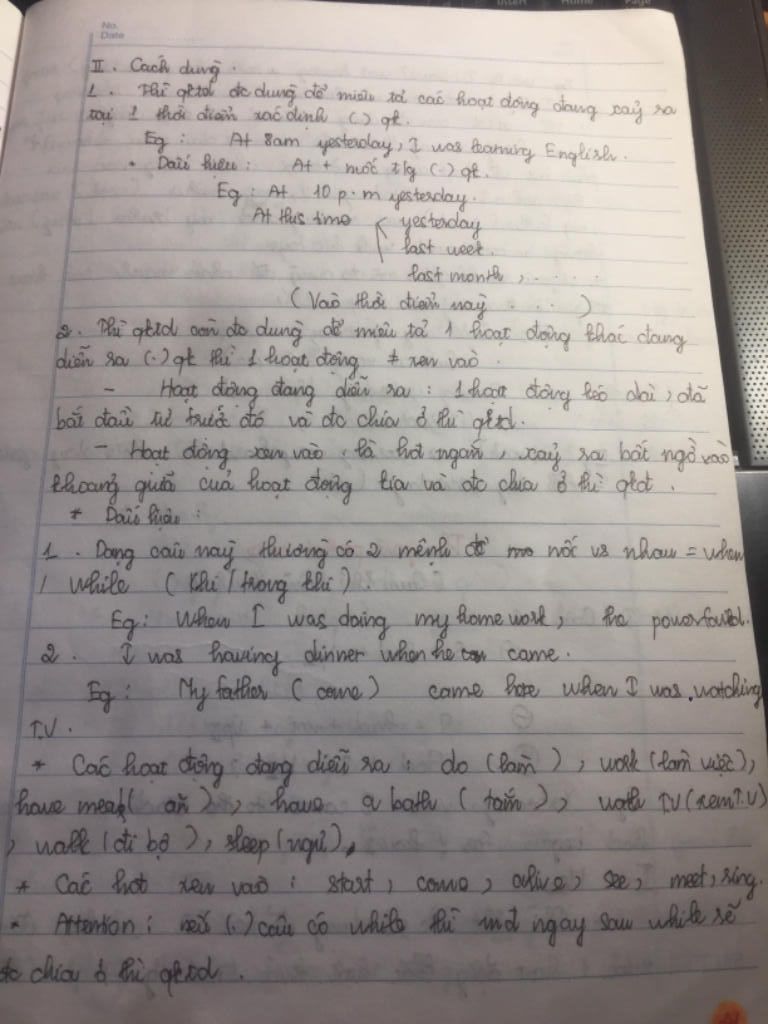 No.
Date
II. Cách dùng.
1. Thì qktd đc dùng để miêu tả các hoạt động đang xảy ra
tại 1 thời điểm xác định (.) qk.
Eg : At 8am yesterday, I was learning English.
* Dấu hiệu : At + mốc t/g (.) qk.
Eg : At 10 p.m yesterday.
At this time yesterday
last week.
last month, . . . .
(Vào thời điểm này . . . )
2. Thì qktd còn đc dùng để miêu tả 1 hoạt động khác đang
diễn ra (.) qk thì 1 hoạt động ≠ xen vào.
- Hoạt động đang diễn ra : 1 hoạt động kéo dài, đã
bắt đầu từ trước đó và đc chia ở thì qktd.
- Hoạt động xen vào là hđt ngắn, xảy ra bất ngờ vào
khoảng giữa của hoạt động kia và đc chia ở thì qkđ.
* Dấu hiệu :
1. Dạng câu này thường có 2 mệnh đề nối vs nhau = when
/ while (Khi / trong khi).
Eg : When I was doing my homework, the power
2. I was having dinner when he came.
Eg : My father (come) came here when I was watching
T.V.
* Các hoạt động đang diễn ra : do (làm), work (làm việc),
have meal (ăn), have a bath (tắm), wath TV (xem T.V)
, walk (đi bộ), sleep (ngủ),
* Các hđt xen vào : start, come, see, meet, ring.
* Attention : nếu (.) câu có while thì mđ ngay sau while sẽ
đc chia ở thì qktd.